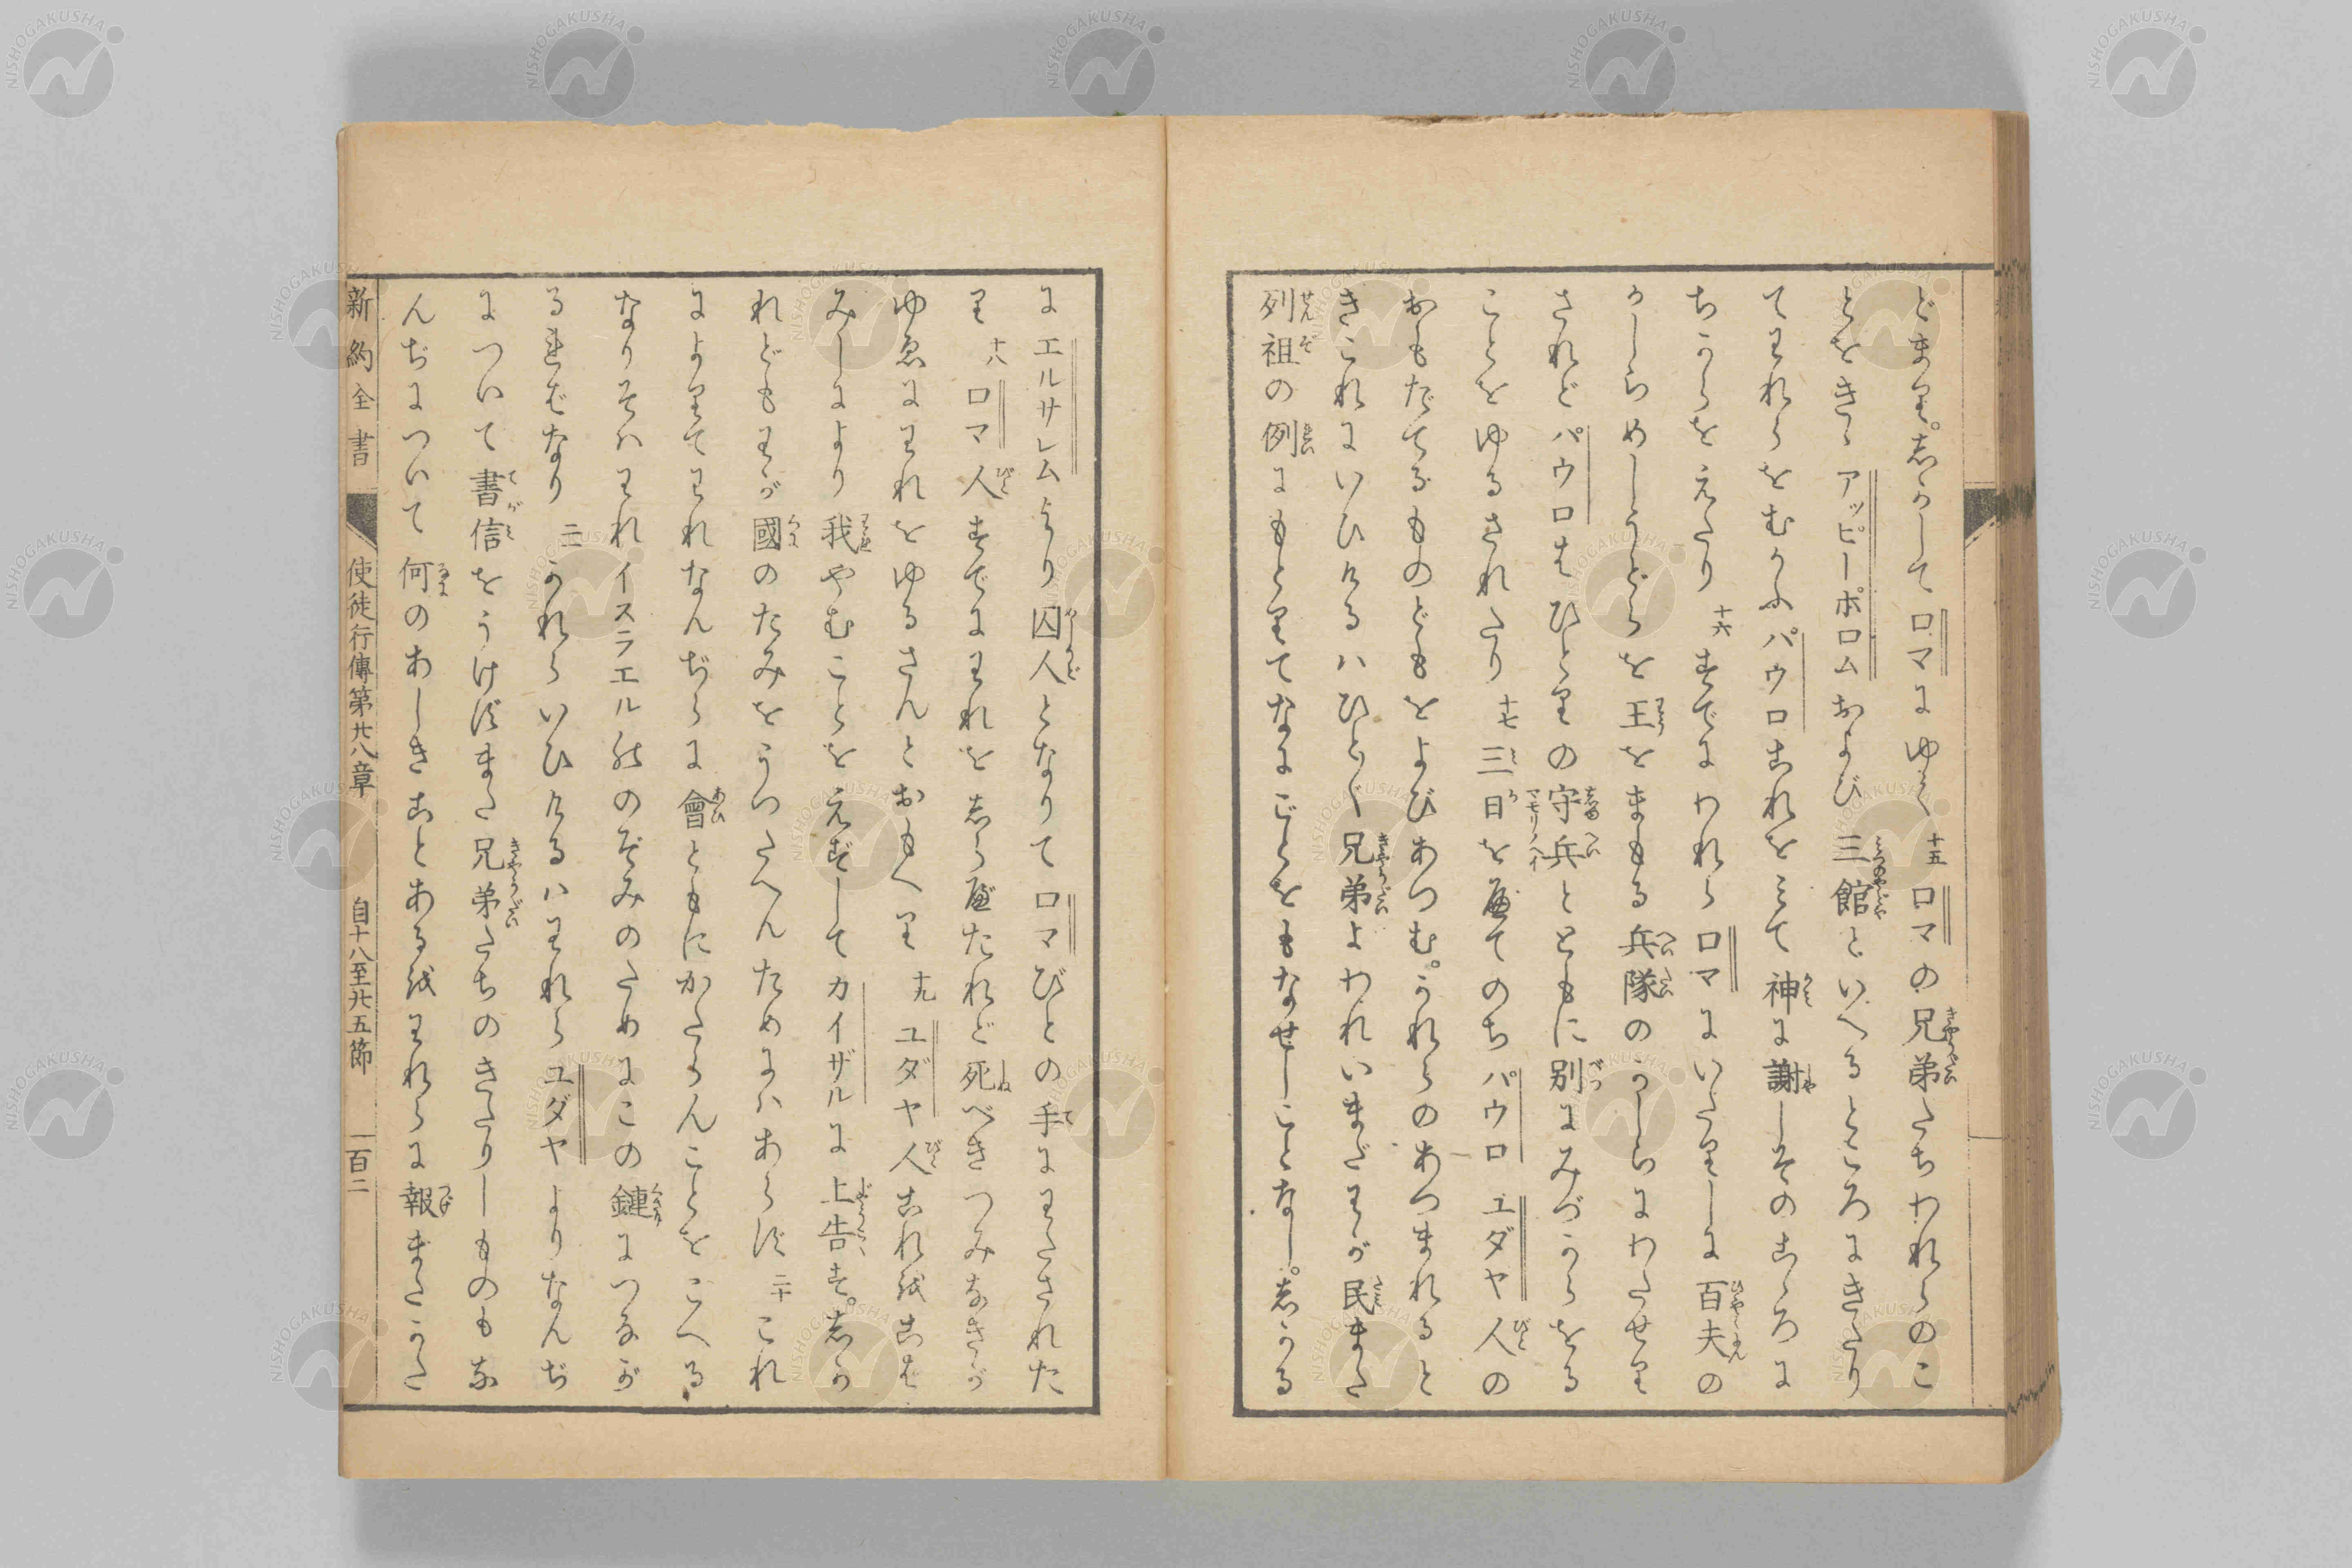 どまり。しかしてロマにゆく 十五 ロマの兄弟たちわれらのこ
とをきゝアッピーポロムおよび三館といへるところにきたり
てわれらをむかふパウロこれをみて神に謝しそのこゝろに
ちからをえたり 十六 すでにわれらロマにいたりしに百夫の
かしらめしうどらを王をまもる兵隊のかしらにわたせり
されどパウロはひとりの守兵とともに別にみづからをる
ことをゆるされたり 十七 三日を歴てのちパウロユダヤ人の
おもだてるものどもをよびあつむ。かれらのあつまれると
きこれにいひけるハひと〴〵兄弟よわれいまだわが民また
列祖の例にもとりてなにごとをもなせしことなし。しかる
にエルサレムより囚人となりてロマびとの手にわたされた
り 十八 ロマ人すでにわれをしらべたれど死べきつみなきが
ゆゑにわれをゆるさんとおもへり 十九 ユダヤ人これをこば
みしにより我やむことをえずしてカイザルに上告す。しか
れどもわが國のたみをうつたへんためにハあらず 二十 これ
によりてわれなんぢらに會ともにかたらんことをこへる
なりそハわれイスラエルのゝぞみのためにこの鏈につながゞ
るればなり 二一 かれらいひけるハわれらユダヤよりなんぢ
について書信をうけずまた兄弟たちのきたりしものもな
んぢについて何のあしきことあるをわれらに報またかた
新約全書 使徒行傳第廿八章 自十八至廿五節 一百二